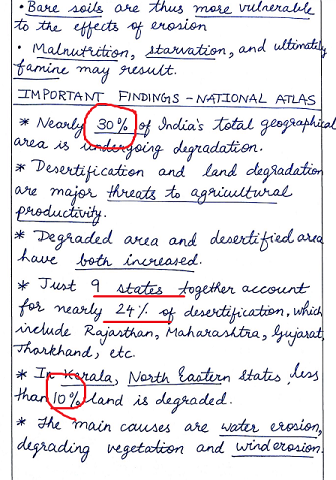 • Bare soils are thus more vulnerable
to the effects of erosion
• Malnutrition, starvation, and ultimately
famine may result.
IMPORTANT FINDINGS - NATIONAL ATLAS
* Nearly 30% of India's total geographical
area is undergoing degradation.
* Desertification and land degradation
are major threats to agricultural
productivity.
* Degraded area and desertified area
have both increased.
* Just 9 states together account
for nearly 24% of desertification, which
include Rajasthan, Maharashtra, Gujarat,
Jharkhand, etc.
* In Kerala, North Eastern states, less
than 10% land is degraded.
* The main causes are water erosion,
degrading vegetation and wind erosion.